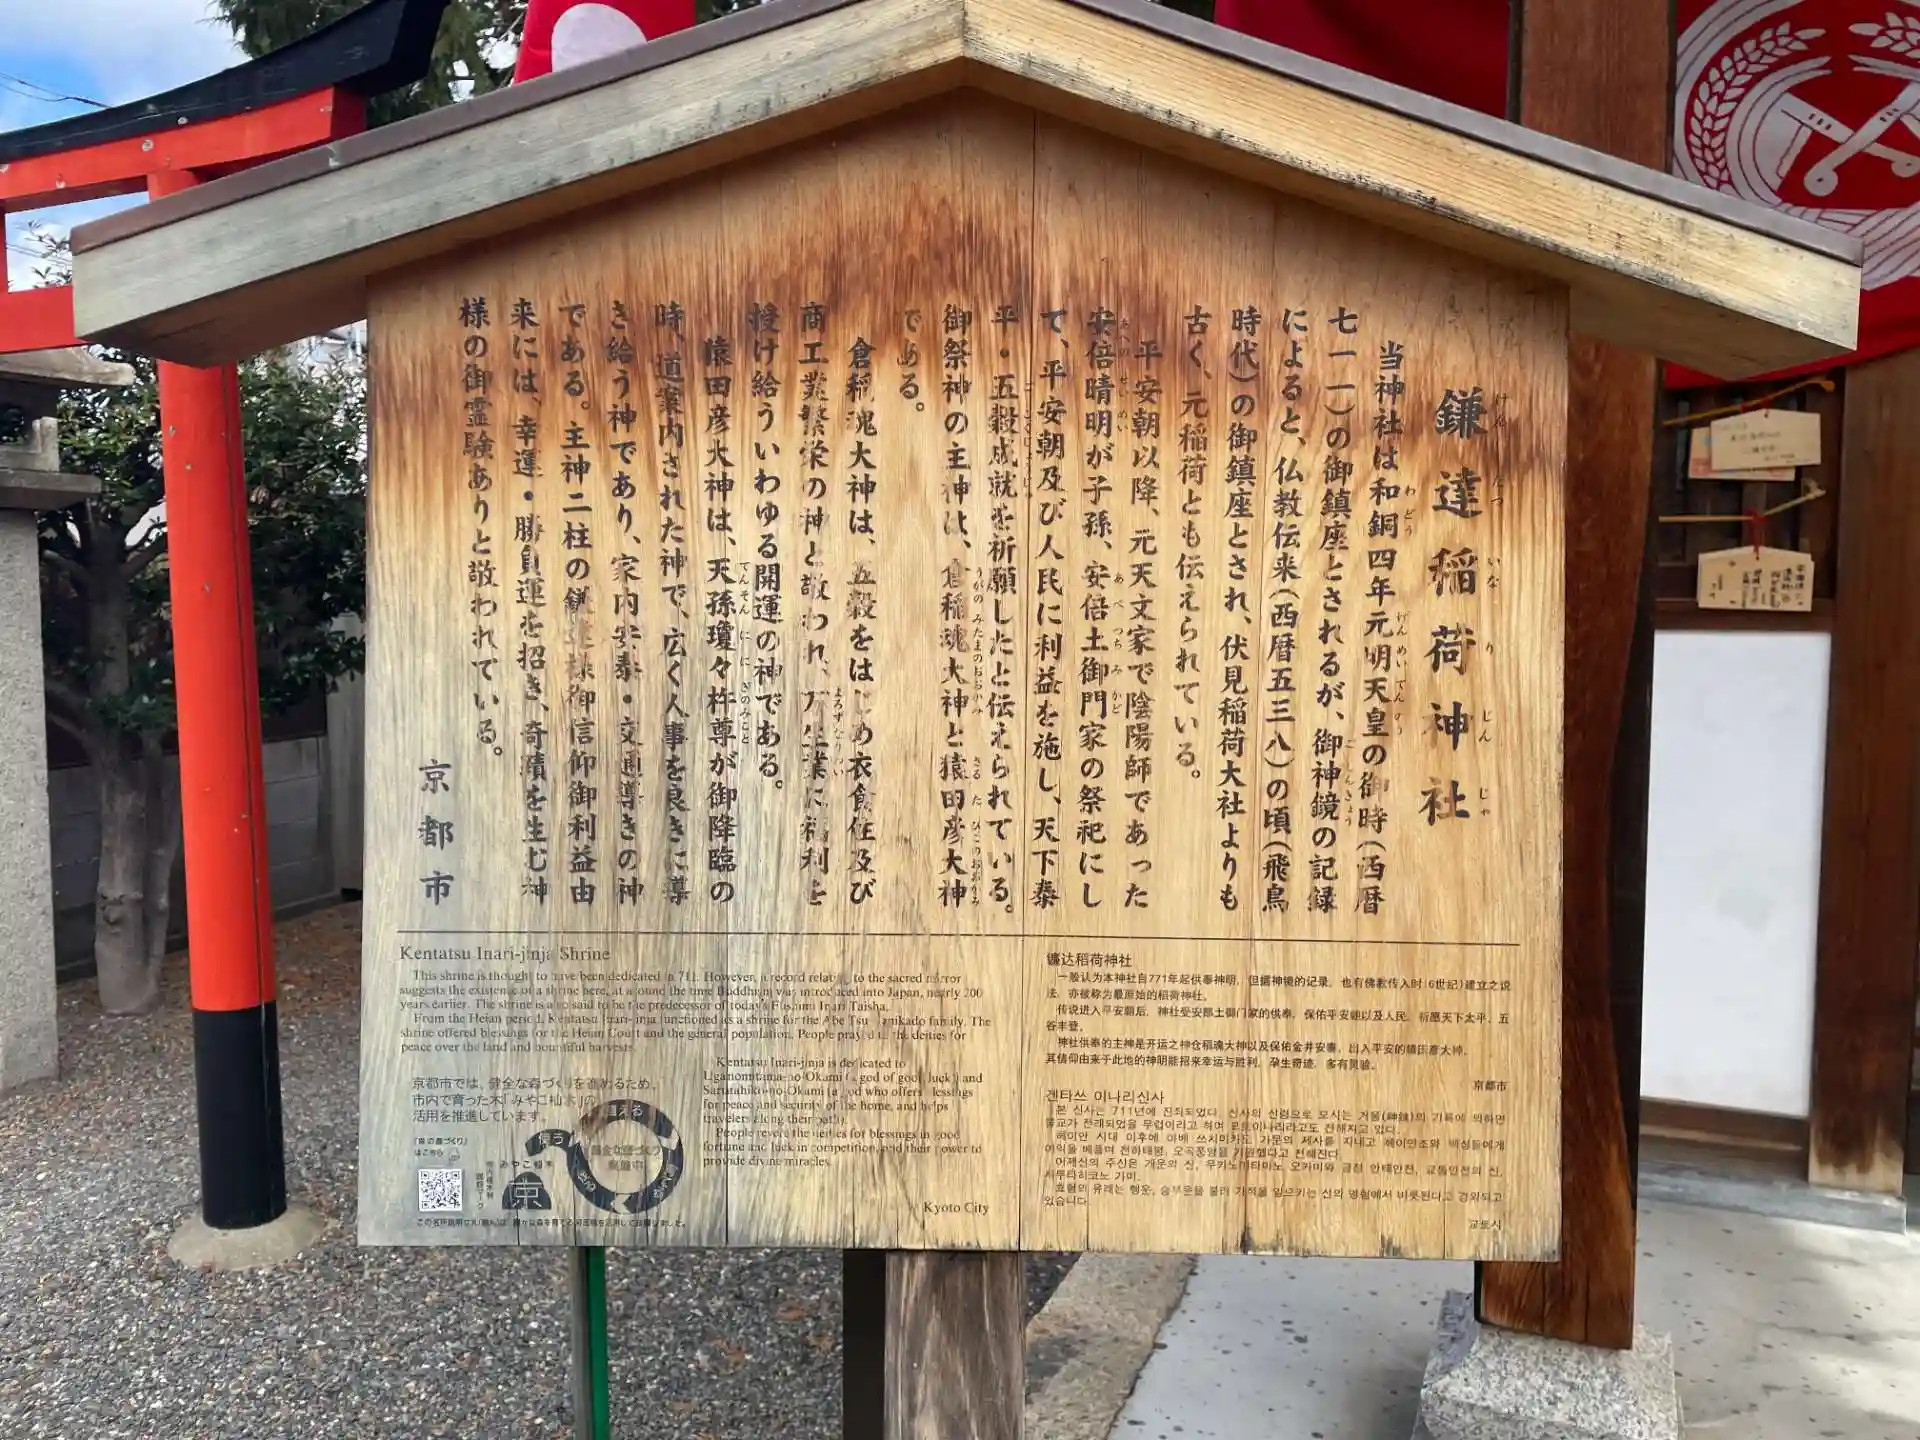 鎌達稲荷神社
当神社は和銅四年元明天皇の御時(西暦
七一一)の御鎮座とされるが、御神鏡の記録
によると、仏教伝来(西暦五三八)の頃(飛鳥
時代)の御鎮座とされ、伏見稲荷大社よりも
古く、元稲荷とも伝えられている。
平安朝以降、元天文家で陰陽師であった
安倍晴明が子孫、安倍土御門家の祭祀にし
て、平安朝及び人民に利益を施し、天下泰
平・五穀成就を祈願したと伝えられている。
御祭神の主神は、倉稲魂大神と猿田彦大神
である。
倉稲魂大神は、五穀をはじめ衣食住及び
商工業繁栄の神と敬われ、万生業に福利を
授け給ういわゆる開運の神である。
猿田彦大神は、天孫瓊々杵尊が御降臨の
時、道案内された神で、広く人事を良きに導
き給う神であり、家内安泰・交通導きの神
である。主神二柱の鎌達様御信仰御利益由
来には、幸運・勝負運を招き、奇蹟を生む神
様の御霊験ありと敬われている。
京都市
Kentatsu Inari-jinja Shrine
This shrine is thought to have been dedicated in 711. However, a record relating to the sacred mirror
suggests the existence of a shrine here, at around the time Buddhism was introduced into Japan, nearly 200
years earlier. The shrine is also said to be the predecessor of today's Fushimi Inari Taisha.
From the Heian period, Kentatsu Inari-jinja functioned as a shrine for the Abe Tsuchimikado family. The
shrine offered blessings for the Heian Court and the general population. People prayed to the deities for
peace over the land and bountiful harvests.
Kentatsu Inari-jinja is dedicated to
Uganomitama-no-Okami (a god of good luck) and
Sarutahiko-no-Okami (a god who offers blessings
for peace and security of the home, and helps
travelers along their path).
People revere the deities for blessings in good
fortune and luck in competition, and their power to
provide divine miracles.
Kyoto City
京都市では、健全な森づくりを進めるため、
市内で育った木「みやこ杣木」の
活用を推進しています。
「森の森づくり」
はこちら
みやこ杣木
京
植える
使う
镰达稻荷神社
一般认为本神社自771年起供奉神明，但据神镜的记录，也有佛教传入时(6世纪)建立之说
法，亦被称为最原始的稻荷神社。
传说进入平安朝后，神社受安部土御门家的供奉，保佑平安朝以及人民，祈愿天下太平，五
谷丰登。
神社供奉的主神是开运之神仓稻魂大神以及保佑全井安泰，出入平安的猿田彦大神。
其信仰由来于此地的神明能招来幸运与胜利，孕生奇迹，多有灵验。
京都市
겐타쓰 이나리신사
본 신사는 711년에 진좌되었다. 신사의 신령으로 모시는 거울(神鏡)의 기록에 의하면
불교가 전래되었을 무렵이라고 하며 모토이나리라고도 전해지고 있다.
헤이안 시대 이후에 아베 쓰치미카도 가문의 제사를 지내고 헤이안조와 백성들에게
이익을 베풀며 천하태평, 오곡풍양을 기원했다고 전해진다.
어제신의 주신은 개운의 신, 우카노미타마노 오카미와 가정 안태안전, 교통안전의 신,
사루타히코노 가미.
효험의 유래는 행운, 승부운을 불러 기적을 일으키는 신의 영험에서 비롯된다고 경외되고
있습니다.
교토시